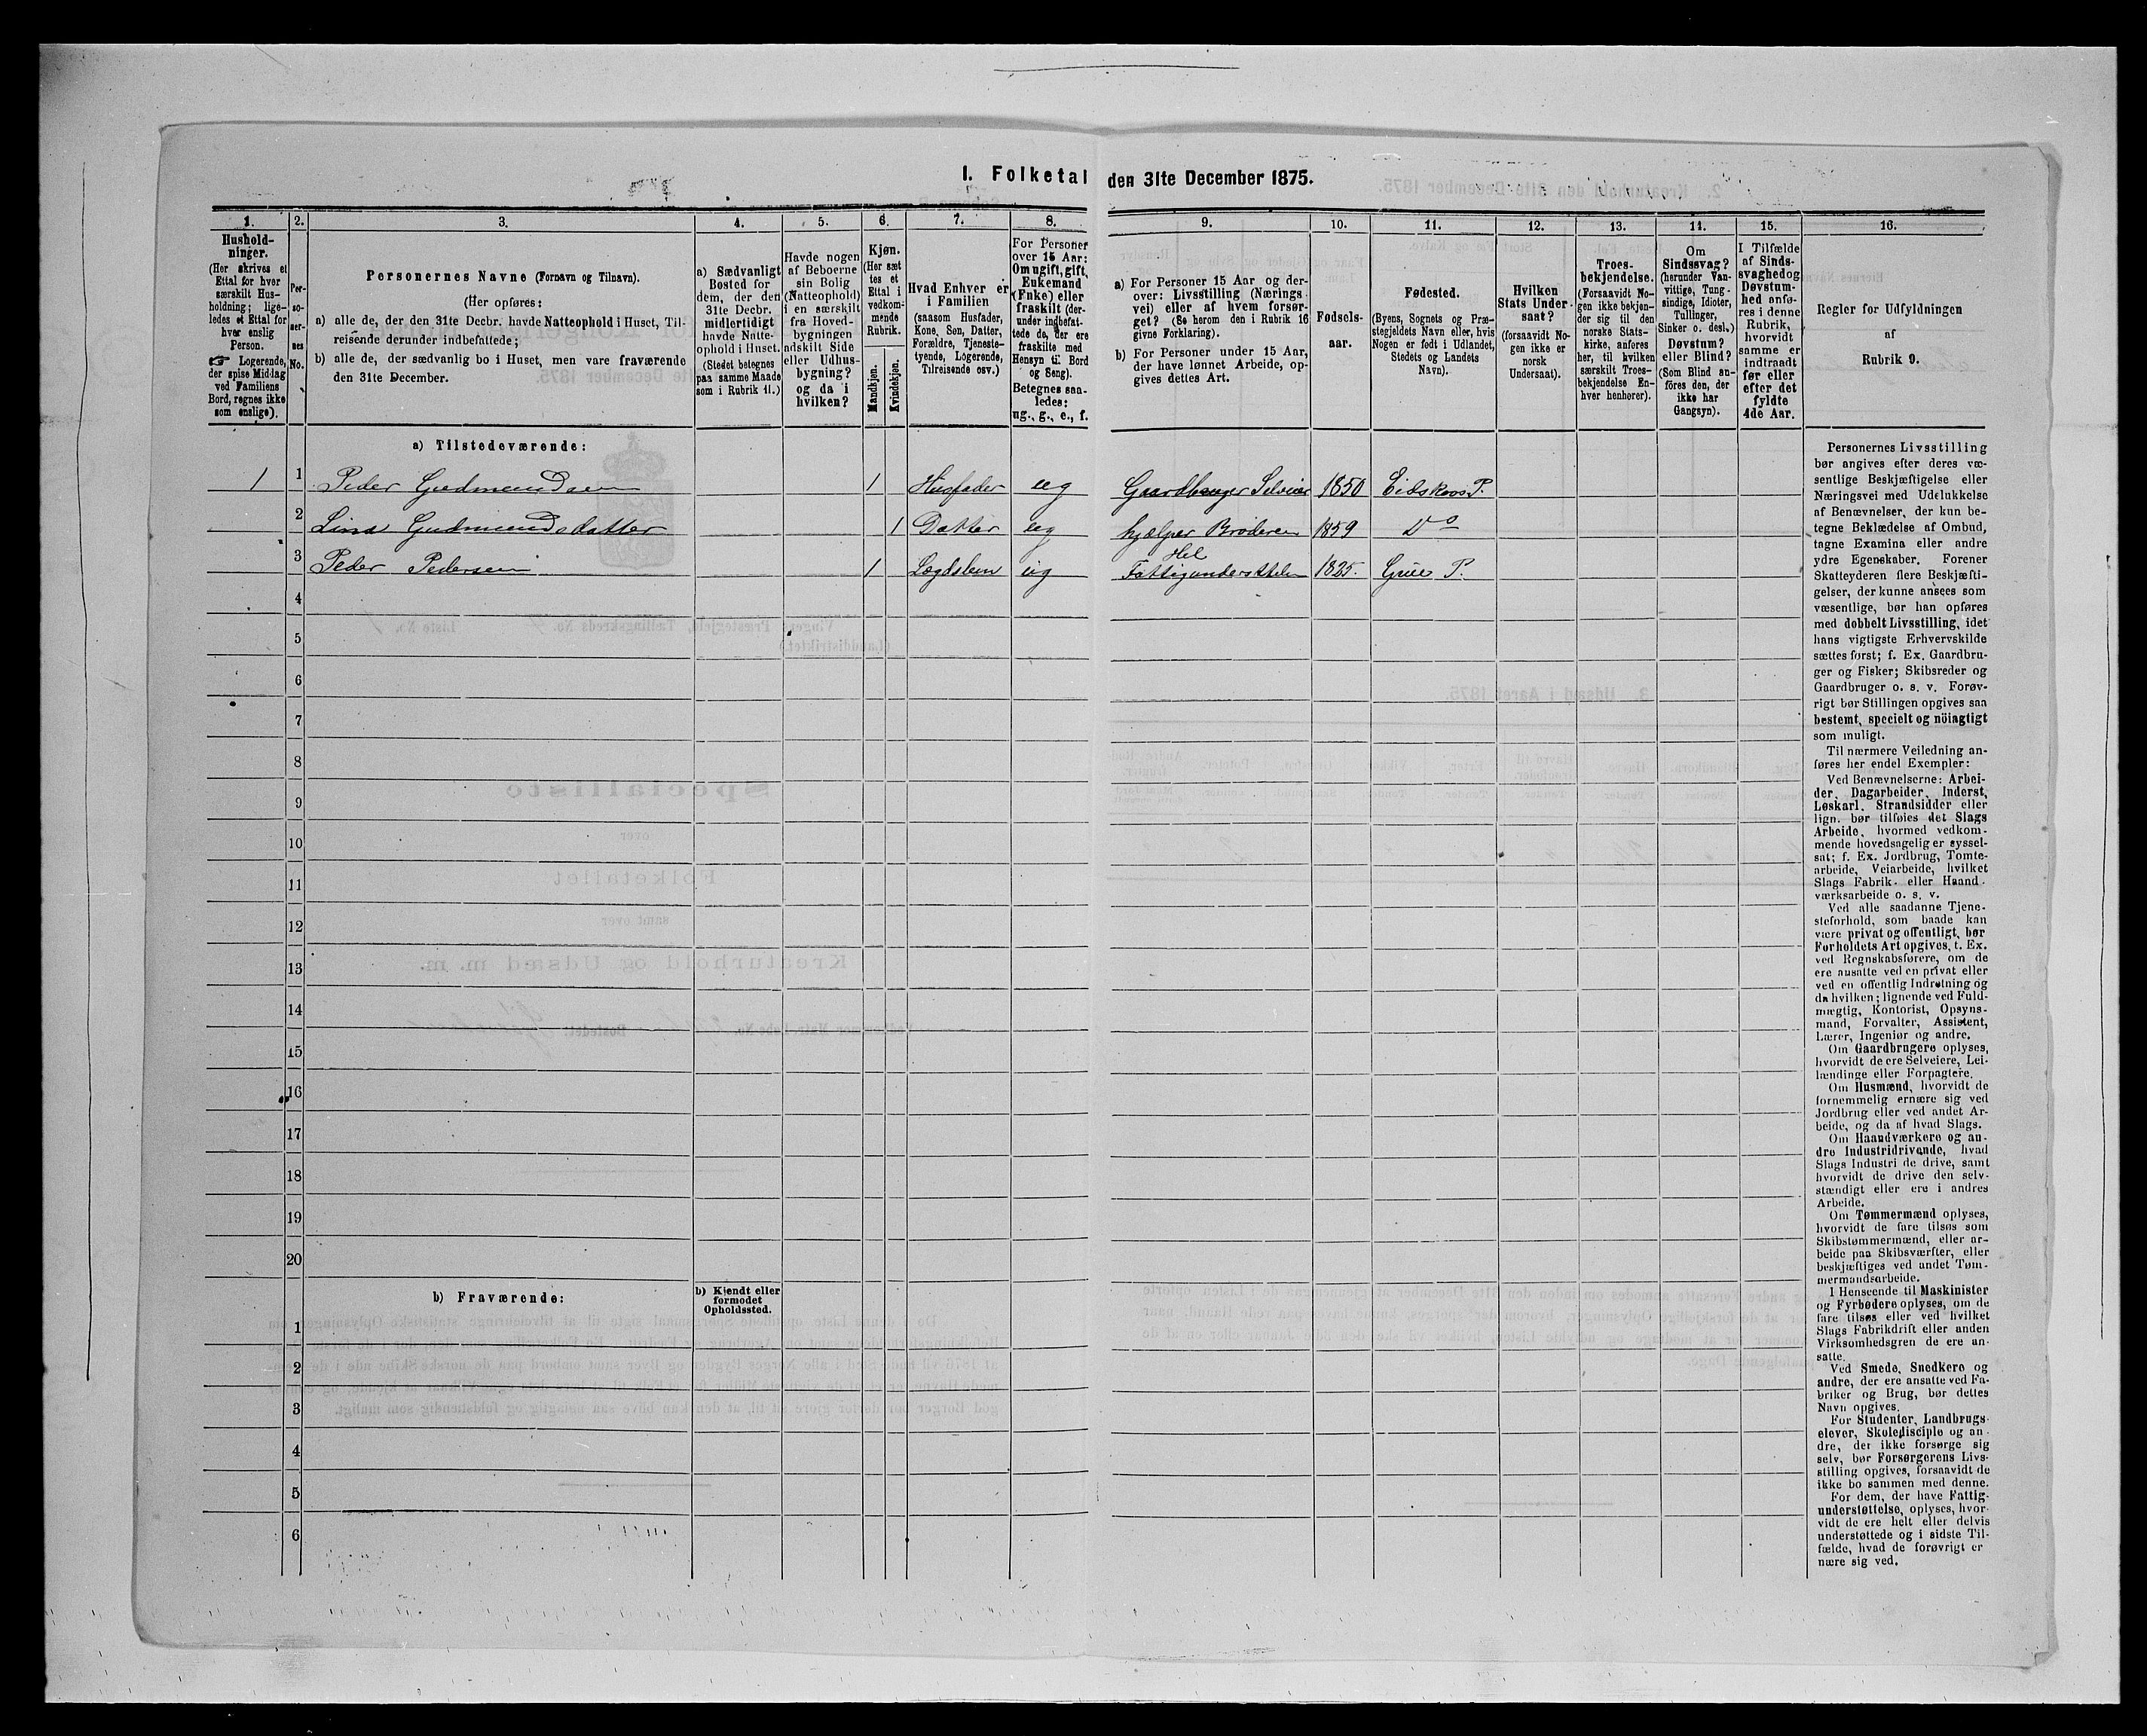 I. Folketal den 31te December 1875.
1. 2. 3. 4. 5. 6. 7. 8. 9. 10. 11. 12. 13. 14. 15. 16.
Hushold-
ninger.
(Her skrives et
Ettal for hver
særskilt Hus-
holdning; lige-
ledes et Ettal for
hver enslig
Person.
☞ Logerende,
der spise Middag
ved Familiens
Bord, regnes ikke
som enslige).
Per-
so-
ner-
nes
No.
Personernes Navne (Fornavn og Tilnavn).
(Her opføres:
a) alle de, der den 31te Decbr. havde Natteophold i Huset, Til-
reisende derunder indbefattede;
b) alle de, der sædvanlig bo i Huset, men vare fraværende
den 31te December.
a) Sædvanligt
Bosted for
dem, der den
31te Decbr.
midlertidigt
havde Natte-
ophold i Huset.
(Stedet betegnes
paa samme Maade
som i Rubrik 11.)
Havde nogen
af Beboerne
sin Bolig
(Natteophold)
i en særskilt
fra Hoved-
bygningen
adskilt Side
eller Udhus-
bygning?
og da i
hvilken?
Kjøn.
(Her sæt
tes et
Ettal i
vedkom-
mende
Rubrik.
Mandkjøn.
Kvindekjøn.
Hvad Enhver er
i Familien
(saasom Husfader,
Kone, Søn, Datter,
Forældre, Tjeneste-
tyende, Logerende,
Tilreisende osv.)
For Personer
over 15 Aar:
Om ugift, gift,
Enkemand
(Enke) eller
fraskilt (der-
under indbefat-
tede de, der ere
fraskilte med
Hensyn til Bord
og Seng).
Betegnes saa-
ledes:
ug., g., e., f.
a) For Personer 15 Aar og der-
over: Livsstilling (Nærings
vei) eller af hvem forsør-
get? (Se herom den i Rubrik 16
givne Forklaring).
b) For Personer under 15 Aar,
der have lønnet Arbeide, op-
gives dettes Art.
Fødsels-
aar.
Fødested.
(Byens, Sognets og Præ-
stegjeldets Navn eller, hvis
Nogen er født i Udlandet,
Stedets og Landets
Navn).
Hvilken
Stats Under-
saat?
(forsaavidt No-
gen ikke er
norsk
Undersaat).
Troes-
bekjendelse.
(Forsaavidt No-
gen ikke bekjen-
der sig til den
norske Stats-
kirke, anføres
her, til hvilken
særskilt Troes-
bekjendelse En-
hver henhører).
Om
Sindssvag?
(herunder Van-
vittige, Tung-
sindige, Idioter,
Tullinger,
Sinker o. desl.)
Døvstum?
eller Blind?
(Som Blind an-
føres den, der
ikke har
Gangsyn).
I Tilfælde
af Sinds-
svaghed og
Døvstum-
hed anfø-
res i denne
Rubrik,
hvorvidt
samme er
indtraadt
før eller
efter det
fyldte
4de Aar.
Regler for Udfyldningen
af
Rubrik 9.
a) Tilstedeværende:
1 1 Peder Gudmundsen 1 Husfader ug Gaardbruger Selveier 1850 Eidskovs P.
2 Lina Gudmundsdatter 1 Datter ug hjælper Broderen 1859 Do
Hel
3 Peder Pedersen 1 Lægdslem ug Fattigunderstttelse 1825. Grue P.
4
5
6
7
8
9
10
11
12
13
14
15
16
17
18
19
20
b) Fraværende:
b) Kjendt eller
formodet
Opholdssted.
1
2
3
4
5
6
Personernes Livsstilling
bør angives efter deres væ-
sentlige Beskjæftigelse eller
Næringsvei med Udelukkelse
af Benævnelser, der kun be-
tegne Beklædelse af Ombud,
tagne Examina eller andre
ydre Egenskaber. Forener
Skatteyderen flere Beskjæfti-
gelser, der kunne ansees som
væsentlige, bør han opføres
med dobbelt Livsstilling, idet
hans vigtigste Erhvervskilde
sættes først; f. Ex. Gaardbru-
ger og Fisker; Skibsreder og
Gaardbruger o. s. v. Forøv-
rigt bør Stillingen opgives saa
bestemt, specielt og nöiagtigt
som muligt.
Til nærmere Veiledning an-
føres her endel Exempler:
Ved Benævnelserne: Arbei-
der, Dagarbeider, Inderst,
Løskarl, Strandsidder eller
lign. bør tilføies det Slags
Arbeide, hvormed vedkom-
mende hovedsagelig er syssel-
sat; f. Ex. Jordbrug, Tomte-
arbeide, Veiarbeide, hvilket
Slags Fabrik- eller Haand-
værksarbeide o. s. v.
Ved alle saadanne Tjene-
steforhold, som baade kan
være privat og offentligt, bør
Forholdets Art opgives, t. Ex.
ved Regnskabsførere, om de
ere ansatte ved en privat eller
ved en offentlig Indretning og
da hvilken; lignende ved Fuld-
mægtig, Kontorist, Opsyns-
mand, Forvalter, Assistent,
Lærer, Ingeniør og andre.
Om Gaardbrugere oplyses,
hvorvidt de ere Selveiere, Lei-
lændinge eller Forpagtere.
Om Husmænd, hvorvidt de
fornemmelig ernære sig ved
Jordbrug eller ved andet Ar-
beide, og da af hvad Slags.
Om Haandværkere og an-
dre Industridrivende, hvad
Slags Industri de drive, samt
hvorvidt de drive den selv-
stændigt eller ere i andres
Arbeide.
Om Tømmermænd oplyses,
hvorvidt de fare tilsøs som
Skibstømmermænd, eller ar-
beide paa Skibsværfter, eller
beskjæftiges ved andet Tøm-
mermandsarbeide.
I Henseende til Maskinister
og Fyrbødere oplyses, om de
fare tilsøs eller ved hvilket
Slags Fabrikdrift eller anden
Virksomhedsgren de ere an-
satte.
Ved Smede, Snedkere og
andre, der ere ansatte ved Fa-
briker og Brug, bør dettes
Navn opgives.
For Studenter, Landbrugs-
elever, Skoledisciple og an-
dre, der ikke forsørge sig
selv, bør Forsørgerens Livs-
stilling opgives, forsaavidt de
ikke bo sammen med denne.
For dem, der have Fattig-
understøttelse, oplyses, hvor-
vidt de ere helt eller delvis
understøttede og i sidste Til-
fælde, hvad de forøvrigt er
nære sig ved.